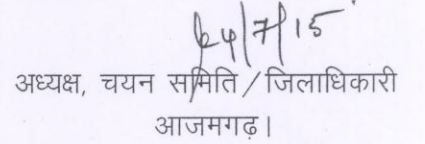 24/7/15
अध्यक्ष, चयन समिति/जिलाधिकारी
आजमगढ़।